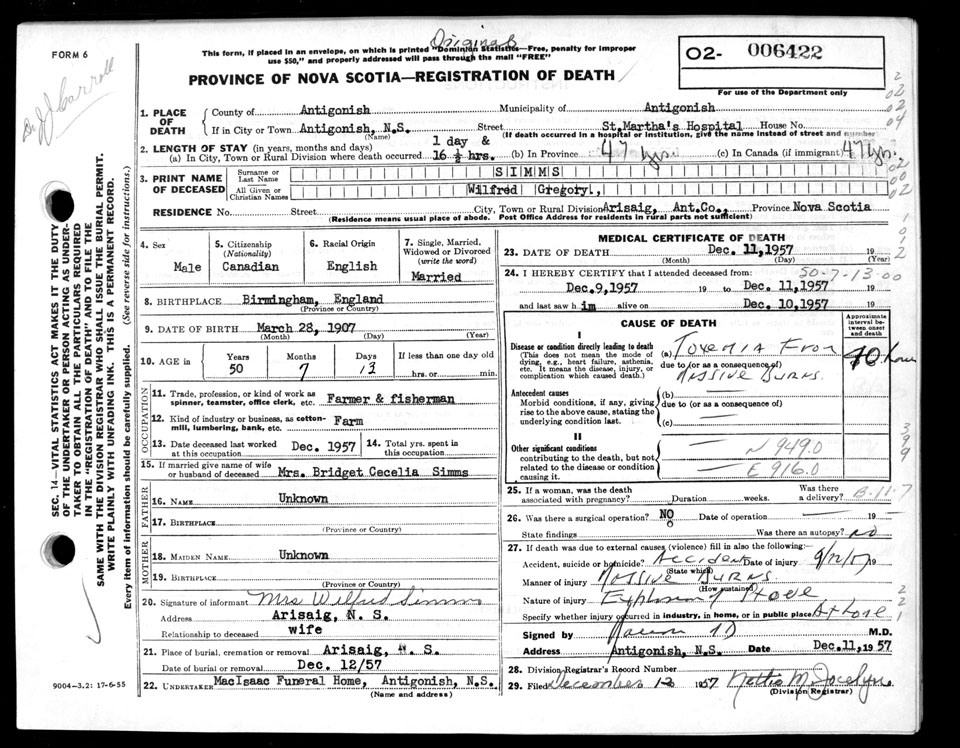 FORM 6
Original
This form, if placed in an envelope, on which is printed "Dominion Statistics—Free, penalty for improper
use $50," and properly addressed will pass through the mail "FREE"
PROVINCE OF NOVA SCOTIA—REGISTRATION OF DEATH
O2- 006422
For use of the Department only
Dr J J Carroll
SEC. 14—VITAL STATISTICS ACT MAKES IT THE DUTY
OF THE UNDERTAKER OR PERSON ACTING AS UNDER-
TAKER TO OBTAIN ALL THE PARTICULARS REQUIRED
IN THE "REGISTRATION OF DEATH" AND TO FILE THE
SAME WITH THE DIVISION REGISTRAR WHO SHALL ISSUE THE BURIAL PERMIT.
WRITE PLAINLY WITH UNFADING INK. THIS IS A PERMANENT RECORD.
Every item of information should be carefully supplied. (See reverse side for instructions.)
1. PLACE OF DEATH
County of Antigonish Municipality of Antigonish
If in City or Town Antigonish, N.S. Street St.Martha's Hospital House No.
(Name) (If death occurred in a hospital or institution, give the name instead of street and number
2. LENGTH OF STAY (in years, months and days) 1 day &
(a) In City, Town or Rural Division where death occurred 16 ½ hrs. (b) In Province 47 yrs. (c) In Canada (if immigrant) 47 yrs.
3. PRINT NAME OF DECEASED
Surname or Last Name SIMMS
All Given or Christian Names Wilfred Gregory.,
RESIDENCE No. Street City, Town or Rural Division Arisaig, Ant.Co., Province Nova Scotia
(Residence means usual place of abode. Post Office Address for residents in rural parts not sufficient)
4. Sex
Male
5. Citizenship
(Nationality)
Canadian
6. Racial Origin
English
7. Single, Married,
Widowed or Divorced
(write the word)
Married
8. BIRTHPLACE Birmingham, England
(Province or Country)
9. DATE OF BIRTH March 28, 1907
(Month) (Day) (Year)
10. AGE in Years Months Days If less than one day old
50 7 13 hrs. or min.
OCCUPATION
11. Trade, profession, or kind of work as
spinner, teamster, office clerk, etc. Farmer & fisherman
12. Kind of industry or business, as cotton-
mill, lumbering, bank, etc. Farm
13. Date deceased last worked
at this occupation Dec. 1957 14. Total yrs. spent in
this occupation
15. If married give name of wife
or husband of deceased Mrs. Bridget Cecelia Simms
FATHER
16. NAME Unknown
17. BIRTHPLACE
(Province or Country)
MOTHER
18. MAIDEN NAME Unknown
19. BIRTHPLACE
(Province or Country)
20. Signature of informant Mrs Wilfred Simms
Address Arisaig, N. S.
Relationship to deceased wife
21. Place of burial, cremation or removal Arisaig, N. S.
Date of burial or removal Dec. 12/57
22. UNDERTAKER MacIsaac Funeral Home, Antigonish, N.S.
(Name and address)
9004-3.2: 17-6-55
MEDICAL CERTIFICATE OF DEATH
23. DATE OF DEATH Dec. 11, 1957 19
(Month) (Day)
24. I HEREBY CERTIFY that I attended deceased from: 50-7-13-00
Dec.9,1957 19 to Dec. 11,1957 19
and last saw h im alive on Dec. 10,1957 19
CAUSE OF DEATH
Approximate
interval be-
tween onset
and death
I
Disease or condition directly leading to death
(This does not mean the mode of
dying, e.g., heart failure, asthenia,
etc. It means the disease, injury, or
complication which caused death.)
(a) Toxemia From
due to (or as a consequence of)
Massive Burns.
40 hours
Antecedent causes
Morbid conditions, if any, giving
rise to the above cause, stating the
underlying condition last.
(b)
due to (or as a consequence of)
(c)
II
Other significant conditions
contributing to the death, but not
related to the disease or condition
causing it.
N 949.0
E 916.0
25. If a woman, was the death Was there
associated with pregnancy? Duration weeks. a delivery? B-11-7
26. Was there a surgical operation? NO Date of operation 19
State findings Was there an autopsy? no
27. If death was due to external causes (violence) fill in also the following:
Accident, suicide or homicide? Accident Date of injury 9/12/57 19
(State which)
Manner of injury Massive Burns
(How sustained)
Nature of injury Explosion of Stove
Specify whether injury occurred in industry, in home, or in public place At home
Signed by M.D.
Address Antigonish, N.S. Date Dec.11, 1957
28. Division Registrar's Record Number
29. Filed December 12 1957 Nettie M. Jocelyn
(Division Registrar)